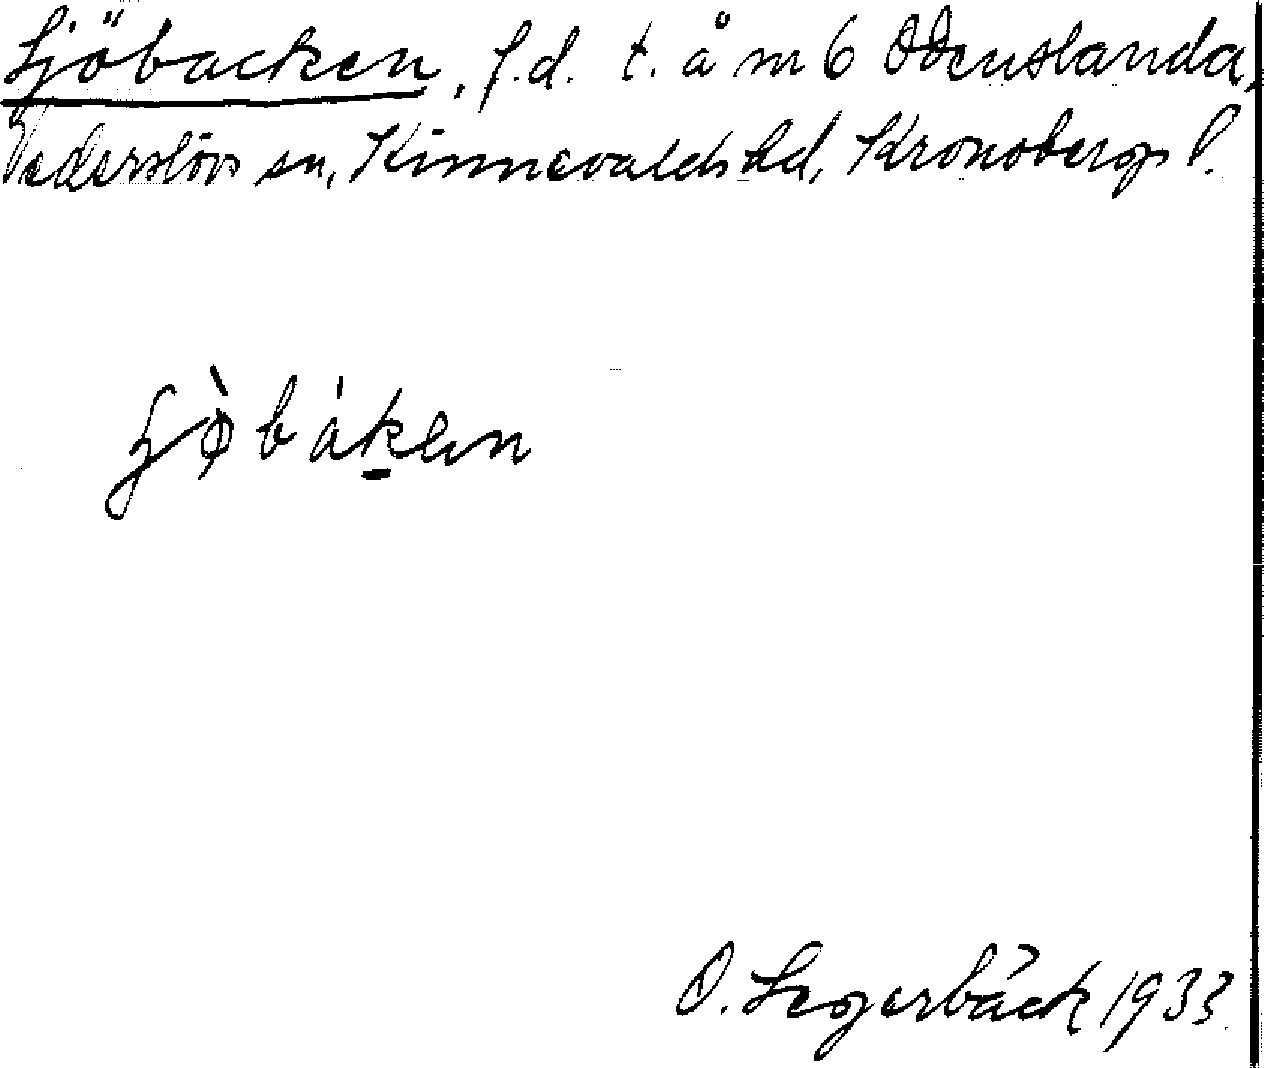 Sjöbacken, f.d. t. å m 6 Odenslanda,
Vederslövs sn, Kinnevalds hd, Kronobergs l.
O. Segerbäck 1933